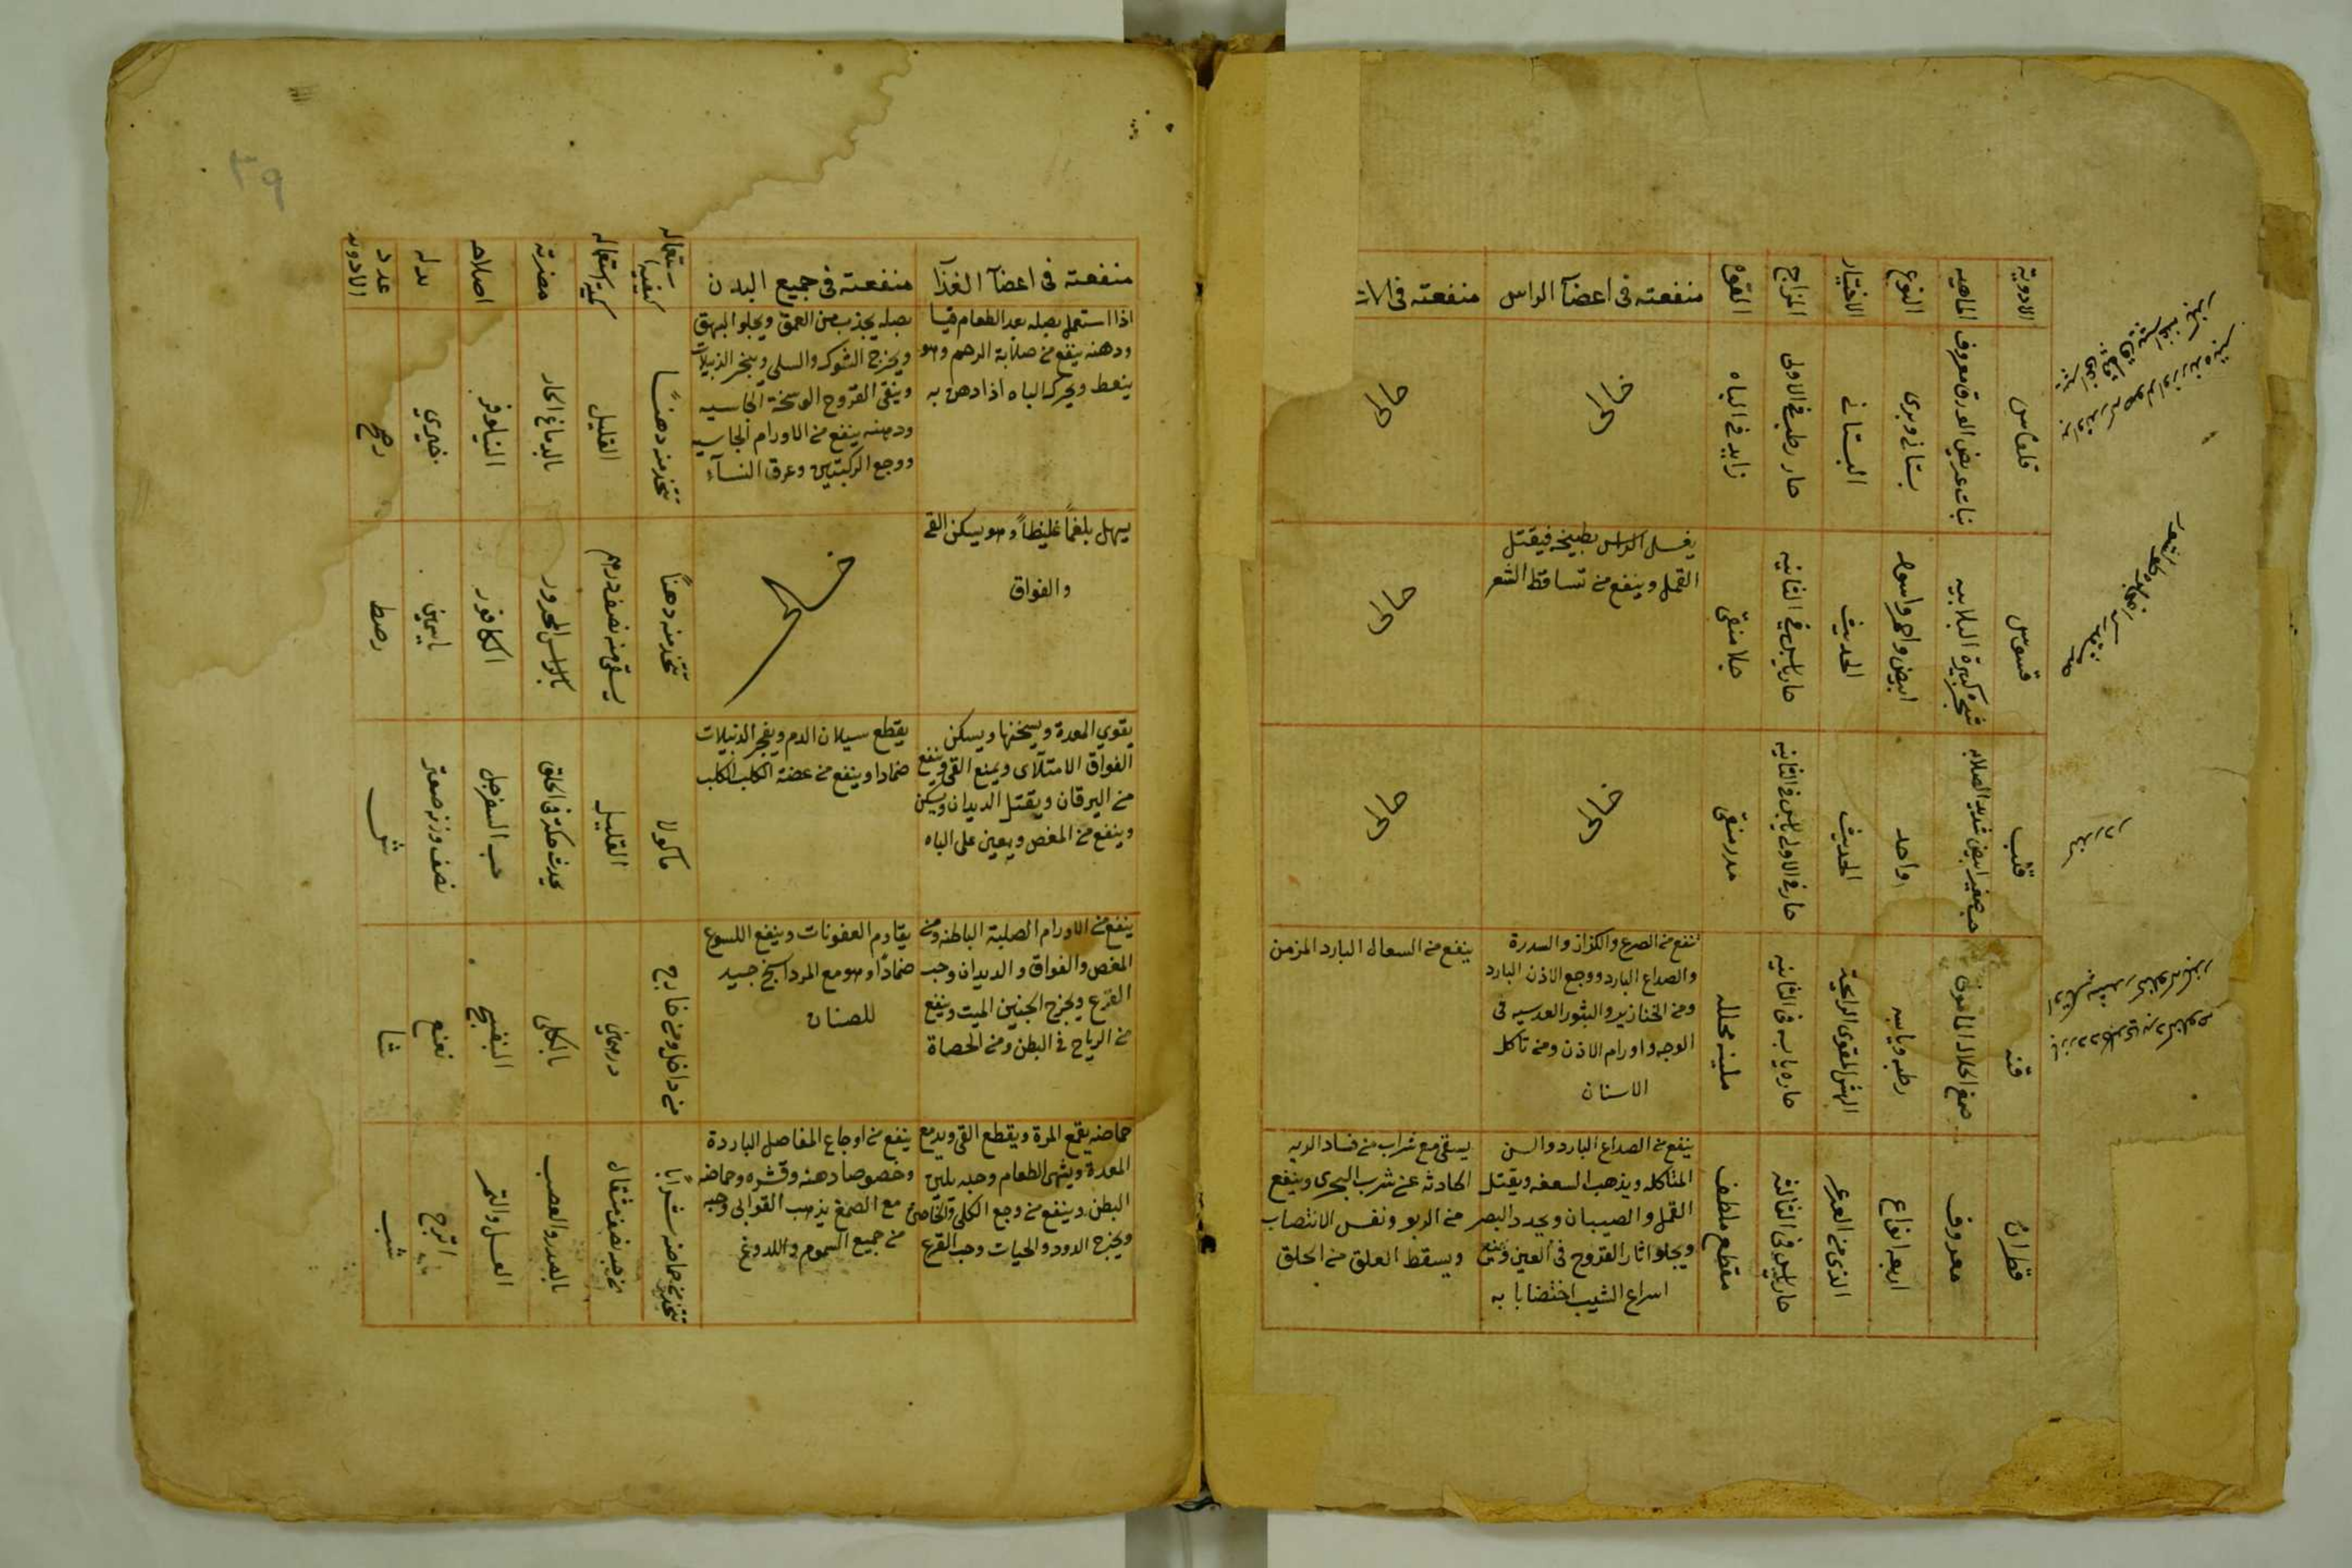 الادوية
الماهيه
النوع
الاختيار
المزاج
القوة
منفعته فى اعضآ الراس
منفعته فى الات
قلقاس
نبات عريض الورق معروف
بستانى وبرى
البستانى
حار رطب فى الاولى
زايد فى الباه
خال
خال
قسوس
ابيض واحمر واسود
الحديث
حار يابس فى الثانيه
جلا منقى
يغسل الراس بطبيخه فيقتل
القمل وينفع من تساقط الشعر
خال
حب صغير ابيض شديد الصلابه
واحد
الحديث
حار فى الاولى يابس فى الثانيه
مدر منقى
خال
خال
قنه
رطبه ويابسه
حاره يابسه فى الثانيه
ملينه محلله
تنفع من الصرع والكزاز والسدرة
والصداع البارد ووجع الاذن البارد
ومن الخنازير والبثور العدسيه فى
الوجه واورام الاذن ومن تاكل
الاسنان
ينفع من السعال البارد المزمن
قطران
معروف
اربعه انواع
الذى من العرعر
حار يابس فى الثالثة
مقطع ملطف
ينفع من الصداع البارد والسن
المتاكله ويذهب السعفه ويقتل
القمل والصيبان ويحدد البصر
ويجلو اثار القروح فى العين ويمنع
اسراع الشيب اختضابا به
يسقى مع شراب من فساد الريه
الحادثه عن شرب البحرى وينفع
من الربو ونفس الانتصاب
ويسقط العلق من الحلق
٣٩
منفعته فى اعضآ الغذآ
منفعته فى جميع البدن
كيفية استعماله
كمية استعماله
مضرته
اصلاحه
بدله
عدد الادويه
اذا استعمل بصله بعد الطعام قيا
ودهنه ينفع من صلابة الرحم وهو
ينعط ويحرك الباه اذا دهن به
بصله يجذب من العمق ويجلو البهق
ويخرج الشوك والسلى ويفجر الدبيلات
وينقى القروح الوسخة الخاسيه
ودهنه ينفع من الاورام الجاسيه
ووجع الركبتين وعرق النسآء
تتخذ منه دهنًا
القليل
بالدماغ الحار
النيلوفر
خيري
رصح
يسهل بلغمًا غليظاً وهو يسكن القى
والفواق
خال
تتخذ منه دهنًا
يسقى منه نصف درهم
بالراس المحرور
الكافور
ياسمين
رصط
يقوي المعدة ويسخنها ويسكن
الفواق الامتلاى ويمنع القى وينفع
من اليرقان ويقتل الديدان ويسكن
وينفع من المغص ويعين على الباه
يقطع سيلان الدم ويفجر الدبيلات
ضمادا وينفع من عضة الكلب الكلب
ماكولا
القليل
يحدث حكة فى الحلق
حب السفرجل
نصف وزنه صعتر
ش
ينفع من الاورام الصلبة الباطنه ومن
المغص والفواق والديدان وحب
القرع ويخرج الجنين الميت وينفع
من الرياح فى البطن ومن الحصاة
يقاوم العفونات وينفع اللسوع
ضمادًا وهو مع المرداسنج جيد
للصنان
من داخل ومن خارج
درهمين
بالكلى
البنفسج
نعنع
شا
حماضه يقمع المرة ويقطع القى ويدبغ
المعدة ويشهى الطعام وحبه يلين
البطن وينفع من وجع الكلى والخاصره
ويخرج الدود والحيات وحب القرع
ينفع من اوجاع المفاصل الباردة
وخصوصا دهنه وقشره وحماضه
مع الصمغ يذهب القوابى وحبه
من جميع السموم واللدوغ
تتخذ من حماضه شرابًا
من حبه نصف مثقال
بالصدر والعصب
العسل والتمر
اترج
شب